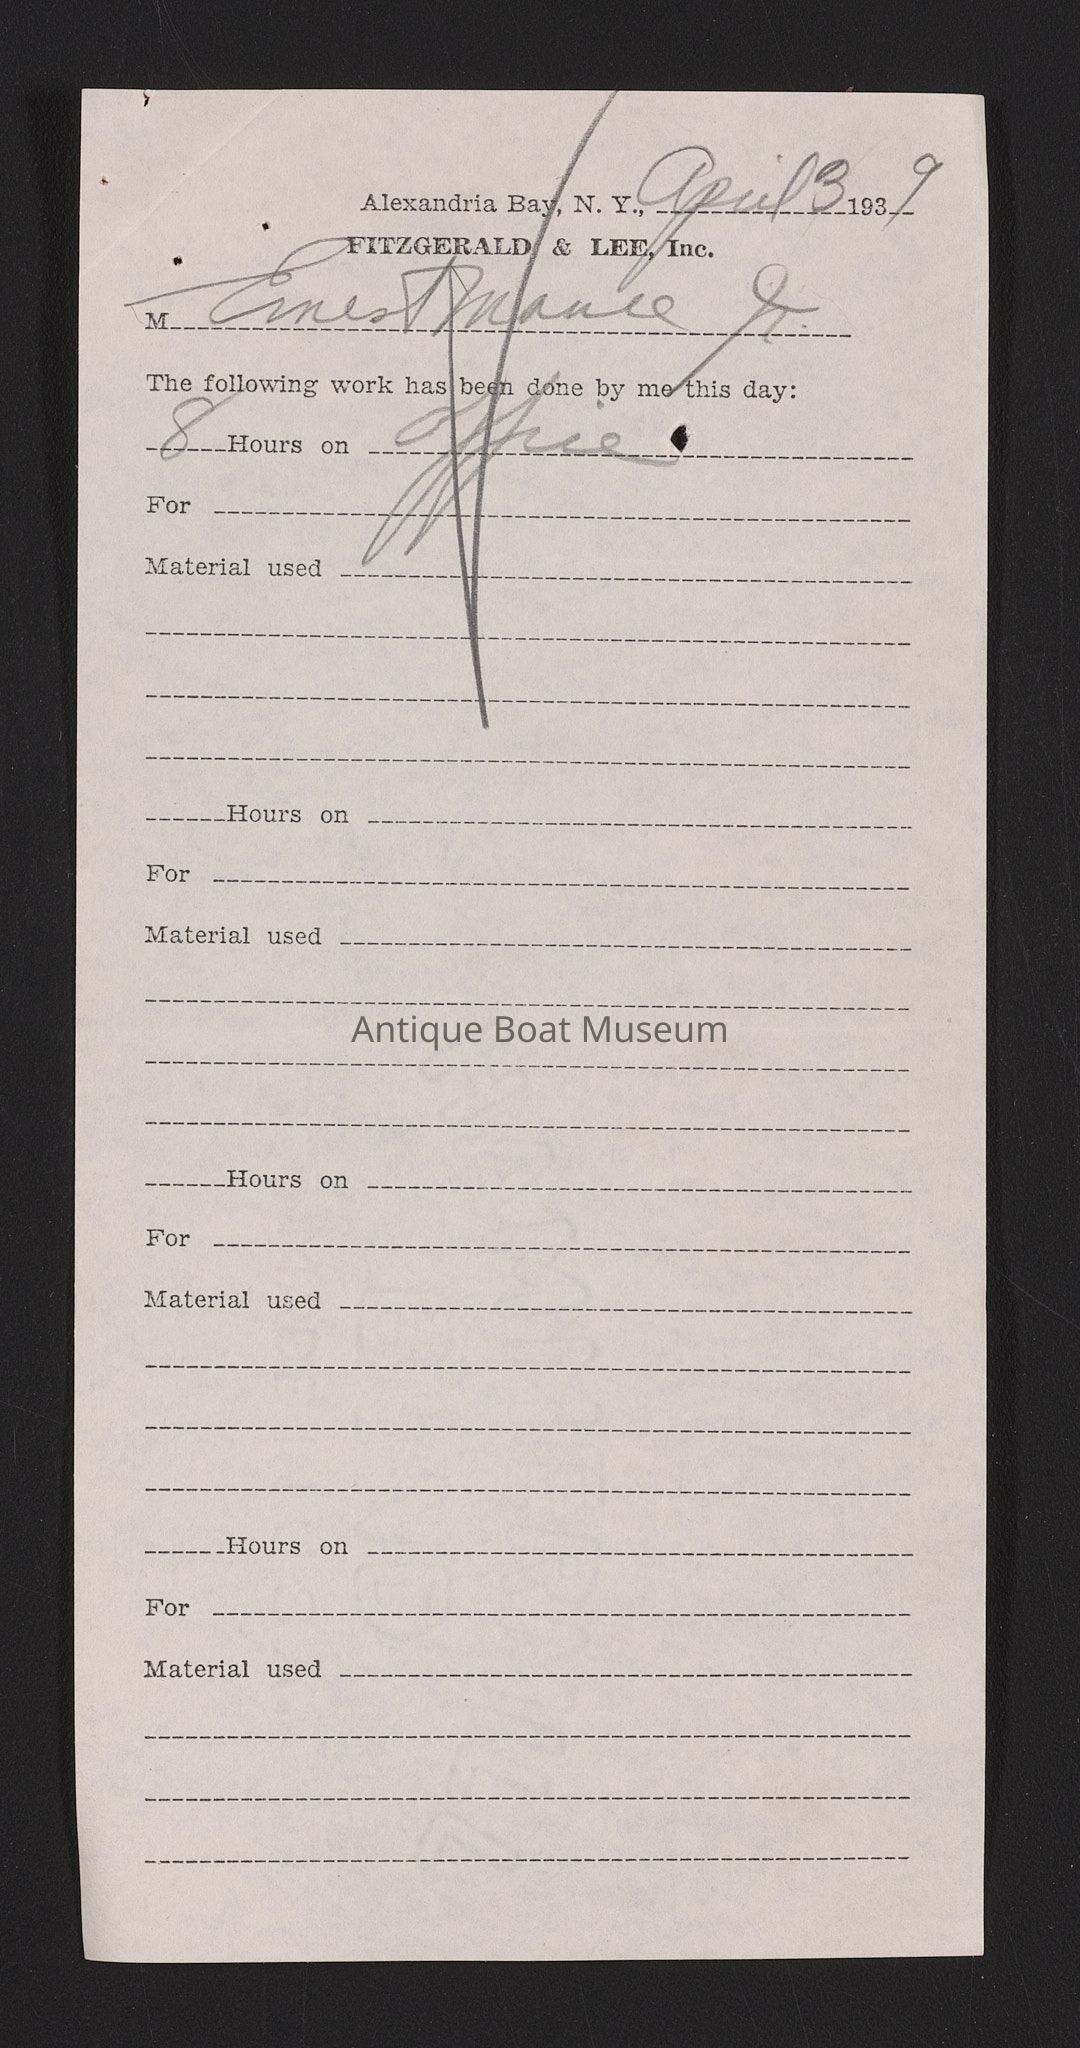 Alexandria Bay, N. Y., April 3 1939
FITZGERALD & LEE, Inc.
M Ernest Mance Jr.
The following work has been done by me this day:
8 Hours on Office
For
Material used
Hours on
For
Material used
Antique Boat Museum
Hours on
For
Material used
Hours on
For
Material used